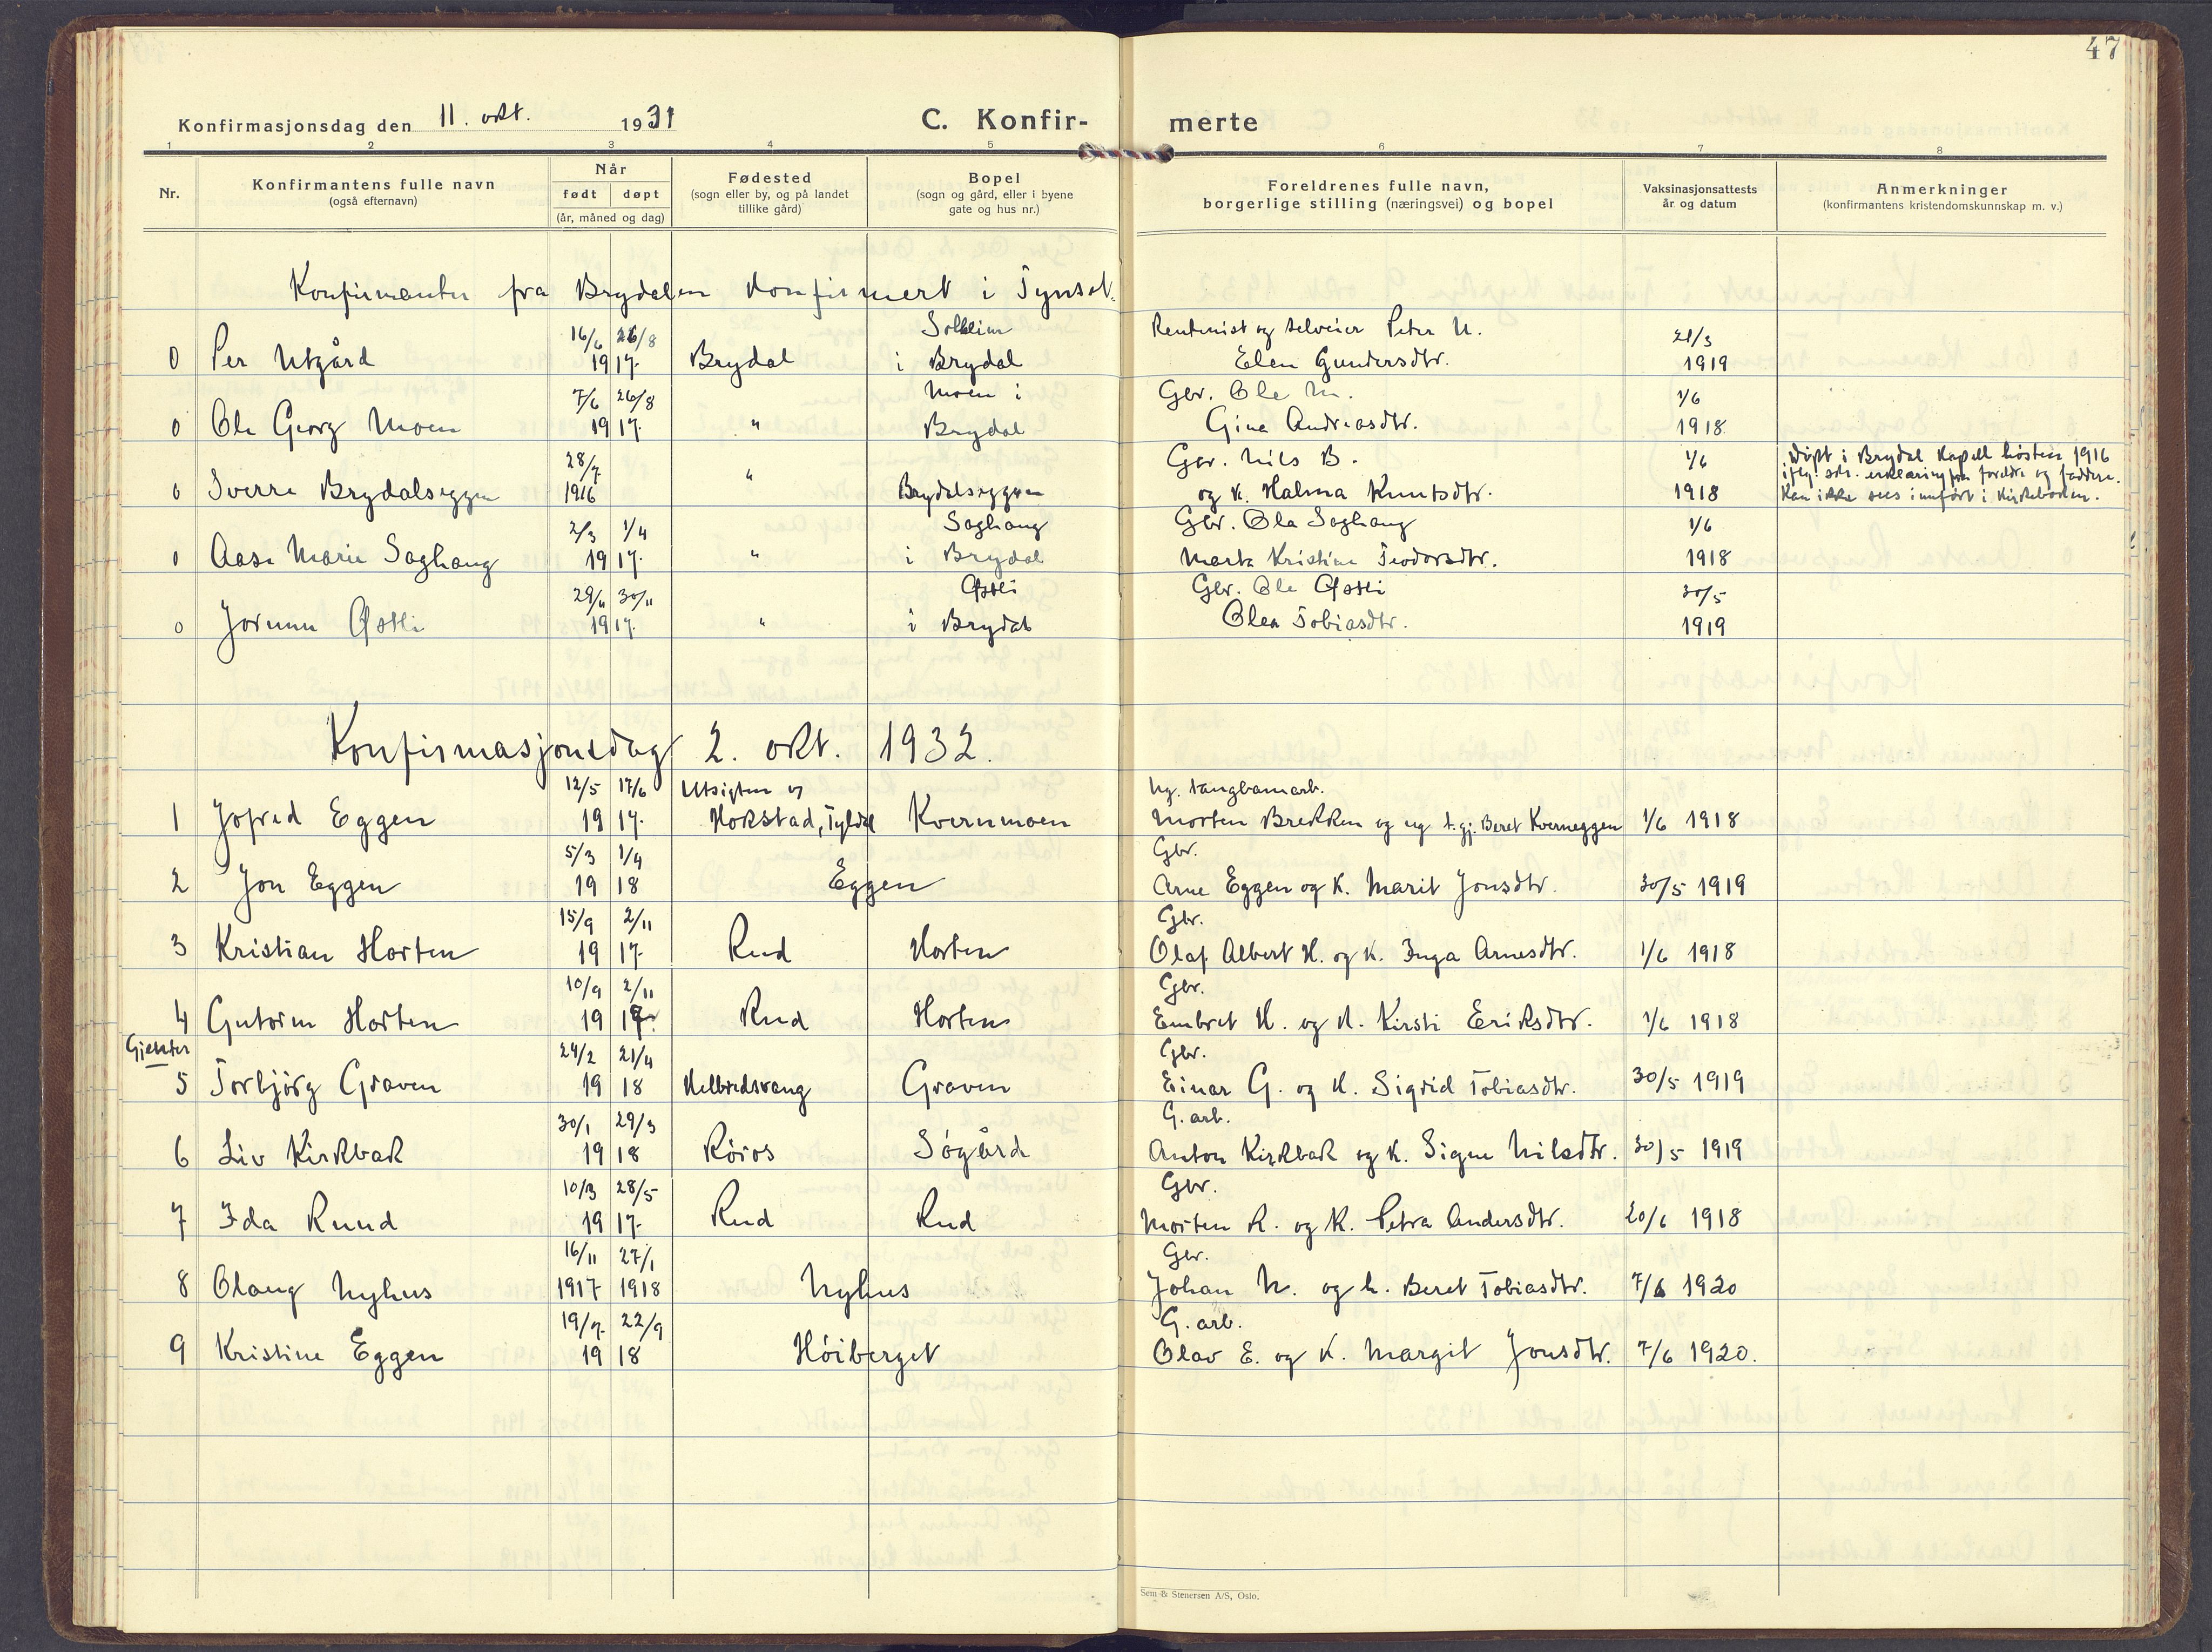 47
Konfirmasjonsdag den 11. okt. 1931
C. Konfir- merte
1 2 3 4 5 6 7 8
Nr.
Konfirmantens fulle navn
(også efternavn)
Når
født døpt
(år, måned og dag)
Fødested
(sogn eller by, og på landet
tillike gård)
Bopel
(sogn og gård, eller i byene
gate og hus nr.)
Foreldrenes fulle navn,
borgerlige stilling (næringsvei) og bopel
Vaksinasjonsattests
år og datum
Anmerkninger
(konfirmantens kristendomskunnskap m. v.)
Konfirmanter fra Brydalen konfirmert i Tynset.
16/6 26/8 Solheim Rentenist og selveier Peter U. 21/3
0 Per Utgård 1917. Brydal i Brydal Elen Gundersdtr. 1919
7/6 26/8 Moen i Gbr. Ole M. 1/6
0 Ole Georg Moen 1917. " Brydal Gina Andreasdtr. 1918
28/7 Gbr. Nils B. 1/6 Døpt i Brydal Kapell høsten 1916
0 Sverre Brydalseggen 1916 " Brydalseggen og K. Halma Knutsdtr. 1918
iflg. sdr. erklæring fra foreldre og faddere.
Kan ikke sees innført i kirkeboken.
2/3 1/4 Saghaug Gbr. Ola Saghaug 1/6
0 Aase Marie Saghaug 1917. " i Brydal Marta Kristine Teodorsdtr. 1918
29/11 30/11 Østli Gbr. Ole Østli 30/5
0 Jorunn Østli 1917. " i Brydal Olea Tobiasdtr. 1919
Konfirmasjonsdag 2. okt. 1932.
12/5 17/6 Utsigten
1 Jofrid Eggen 1917. Hokstad, Tyldal Kvernmoen Morten Brekken og ug t.gj. Beret Kverneggen 1/6 1918
5/3 1/4 Gbr.
2 Jon Eggen 1918 Eggen Arne Eggen og K. Marit Jonsdtr. 30/5 1919
15/9 2/11 Gbr.
3 Kristian Horten 1917. Rud Horten Olaf Albert H. og K. Inga Arnesdtr. 1/6 1918
10/9 2/11 Gbr.
4 Gutorm Horten 1917. Rud Horten Embret H. og K. Kirsti Eriksdtr. 1/6 1918
Gjenter 24/2 21/4 Gbr.
5 Torbjörg Graven 1918 Helbredsvang Graven Einar G. og K. Sigrid Tobiasdtr. 30/5 1919
30/1 29/3 G. arb.
6 Liv Kirkbak 1918 Röros Sögård Anton Kirkbak og K. Signe Nilsdtr. 30/5 1919
10/3 28/5 Gbr.
7 Ida Ruud 1917. Rud Rud Morten R. og K. Petra Andersdtr. 20/6 1918
16/11 27/1 Gbr.
8 Olaug Nyhus 1917 1918 Nyhus Johan N. og h. Beret Tobiasdtr. 7/6 1920
19/7 22/9 G. arb.
9 Kristine Eggen 1918 Höiberget Olav E. og K. Margit Jonsdtr. 7/6 1920.
Sem & Stenersen A/S, Oslo.